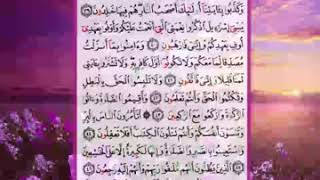 وَكَذَّبُوا۟ بِـَٔايَـٰتِنَآ أُو۟لَـٰٓئِكَ أَصْحَـٰبُ ٱلنَّارِ هُمْ فِيهَا خَـٰلِدُونَ ٣٩
يَـٰبَنِىٓ إِسْرَٰٓءِيلَ ٱذْكُرُوا۟ نِعْمَتِىَ ٱلَّتِىٓ أَنْعَمْتُ عَلَيْكُمْ وَأَوْفُوا۟ بِعَهْدِىٓ
أُوفِ بِعَهْدِكُمْ وَإِيَّـٰىَ فَٱرْهَبُونِ ٤٠ وَءَامِنُوا۟ بِمَآ أَنزَلْتُ
مُصَدِّقًا لِّمَا مَعَكُمْ وَلَا تَكُونُوٓا۟ أَوَّلَ كَافِرٍۭ بِهِۦ وَلَا تَشْتَرُوا۟ بِـَٔايَـٰتِى
ثَمَنًا قَلِيلًا وَإِيَّـٰىَ فَٱتَّقُونِ ٤١ وَلَا تَلْبِسُوا۟ ٱلْحَقَّ بِٱلْبَـٰطِلِ
وَتَكْتُمُوا۟ ٱلْحَقَّ وَأَنتُمْ تَعْلَمُونَ ٤٢ وَأَقِيمُوا۟ ٱلصَّلَوٰةَ وَءَاتُوا۟
ٱلزَّكَوٰةَ وَٱرْكَعُوا۟ مَعَ ٱلرَّٰكِعِينَ ٤٣ أَتَأْمُرُونَ ٱلنَّاسَ بِٱلْبِرِّ
وَتَنسَوْنَ أَنفُسَكُمْ وَأَنتُمْ تَتْلُونَ ٱلْكِتَـٰبَ أَفَلَا تَعْقِلُونَ ٤٤
وَٱسْتَعِينُوا۟ بِٱلصَّبْرِ وَٱلصَّلَوٰةِ وَإِنَّهَا لَكَبِيرَةٌ إِلَّا عَلَى ٱلْخَـٰشِعِينَ ٤٥
ٱلَّذِينَ يَظُنُّونَ أَنَّهُم مُّلَـٰقُوا۟ رَبِّهِمْ وَأَنَّهُمْ إِلَيْهِ رَٰجِعُونَ ٤٦